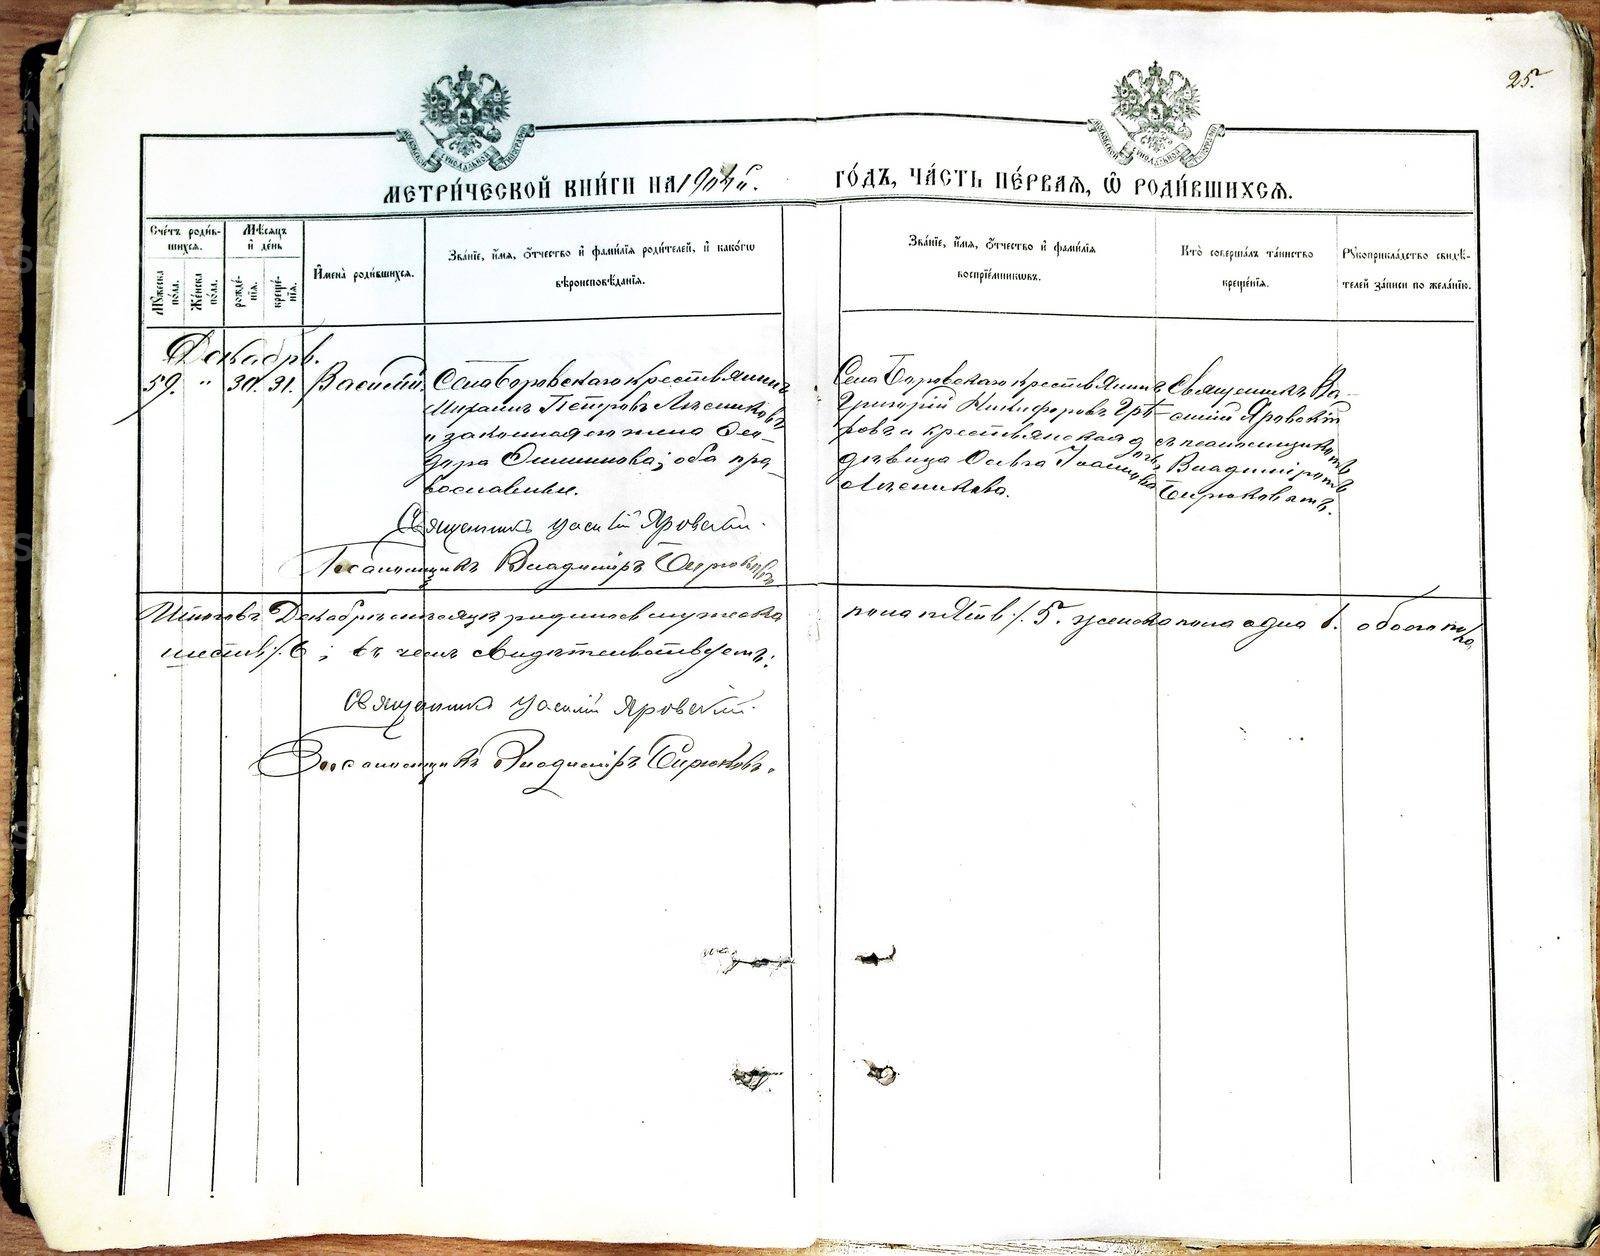 25.
МЕТРИ́ЧЕСКОЙ КНИ́ГИ НА 1904й. ГО́ДЪ, ЧА́СТЬ ПЕ́РВАЯ, Ѿ РОДИ́ВШИХСЯ.
Сче́тъ роди́вшихся.
Мѣ́сяцъ и҆ де́нь
Му́жеска по́ла.
Же́нска по́ла.
рожде́нїя.
креще́нїя.
И҆мена̀ роди́вшихся.
Зва́нїе, и҆́мя, ѻ҆́тчество и҆ фами́лїя роди́телей, и҆ како́гѡ
вѣроисповѣ́данїя.
Зва́нїе, и҆́мя, ѻ҆́тчество и҆ фами́лїя
воспрїе́мникѡвъ.
Кто̀ соверша́лъ та́инство
креще́нїя.
Рꙋкоприкла́дство свидѣ́-
телей за́писи по жела́нїю.
Декабрь.
59. " 30. 31. Василій.
Села Боровскаго крестьянинъ
Михаилъ Петровъ Лѣсниковъ
и законная его жена Ѳео-
дора ; оба пра-
вославные.
Священникъ Василій Яровскій.
Псаломщикъ Владиміръ Бирюковъ
Села Боровскаго крестьянинъ
Григорій Никифоровъ
и крестьянская дочь
дѣвица Ольга Іоаннова
Лѣсникова.
Священникъ Ва-
силій Яровскій
съ псаломщикомъ
Владиміромъ
Бирюковымъ.
Итого въ Декабрѣ мѣсяцѣ родилось мужеска пола пять /. 5. женска пола одна 1. обоего пола
шесть /. 6; въ чемъ свидѣтельствуемъ:
Священникъ Василій Яровскій.
Псаломщикъ Владиміръ Бирюковъ.